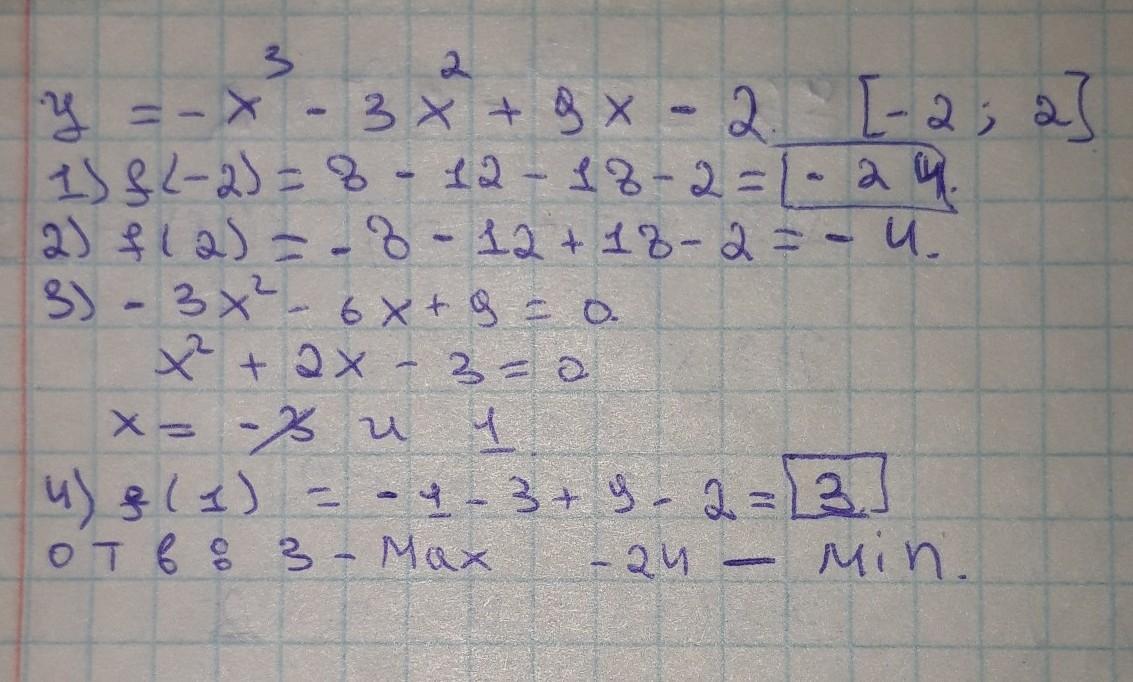 y = -x³ - 3x² + 9x - 2. [-2; 2]
1) f(-2) = 8 - 12 - 18 - 2 = -24.
2) f(2) = -8 - 12 + 18 - 2 = -4.
3) -3x² - 6x + 9 = 0.
x² + 2x - 3 = 0
x = -3 и 1.
4) f(1) = -1 - 3 + 9 - 2 = 3.
отв: 3 - Max -24 — Min.